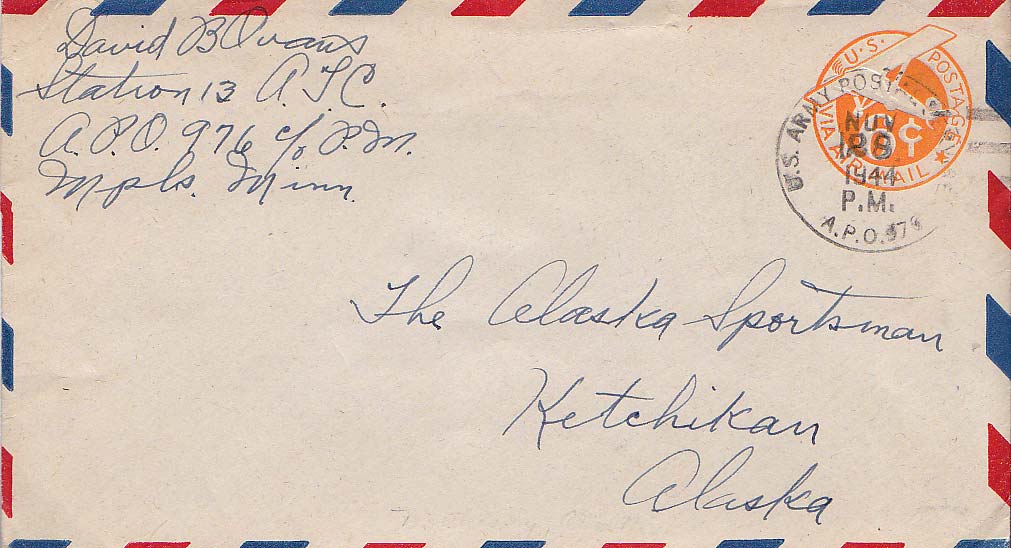 David B Ovans
Station 13 A.T.C.
A.P.O. 976 c/o P.M.
Mpls. Minn.
U.S. POSTAGE
VIA AIR MAIL
¢
U.S. ARMY POSTAL
NOV
28
1944
P.M.
A.P.O.
The Alaska Sportsman
Ketchikan
Alaska